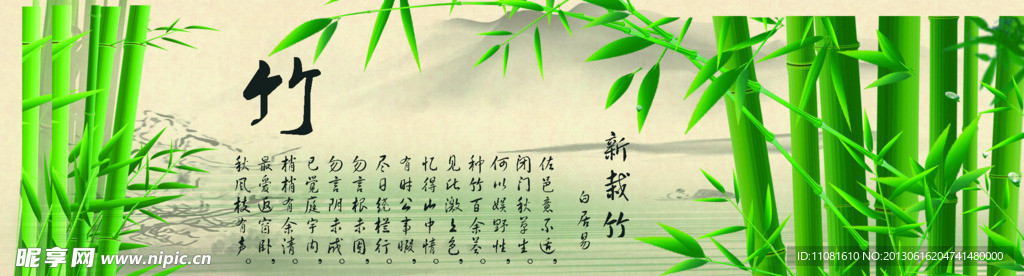 竹
新栽竹
白居易
佐邑意不适，
闭门秋草生。
何以娱野性，
种竹百余茎。
见此溪上色，
忆得山中情。
有时公事暇，
尽日绕栏行。
勿言根未固，
勿言阴未成。
已觉庭宇内，
梢梢有余清。
最爱近窗卧，
秋风枝有声。
昵享网 www.nipic.cn
ID:11081610 NO:20130616204741480000